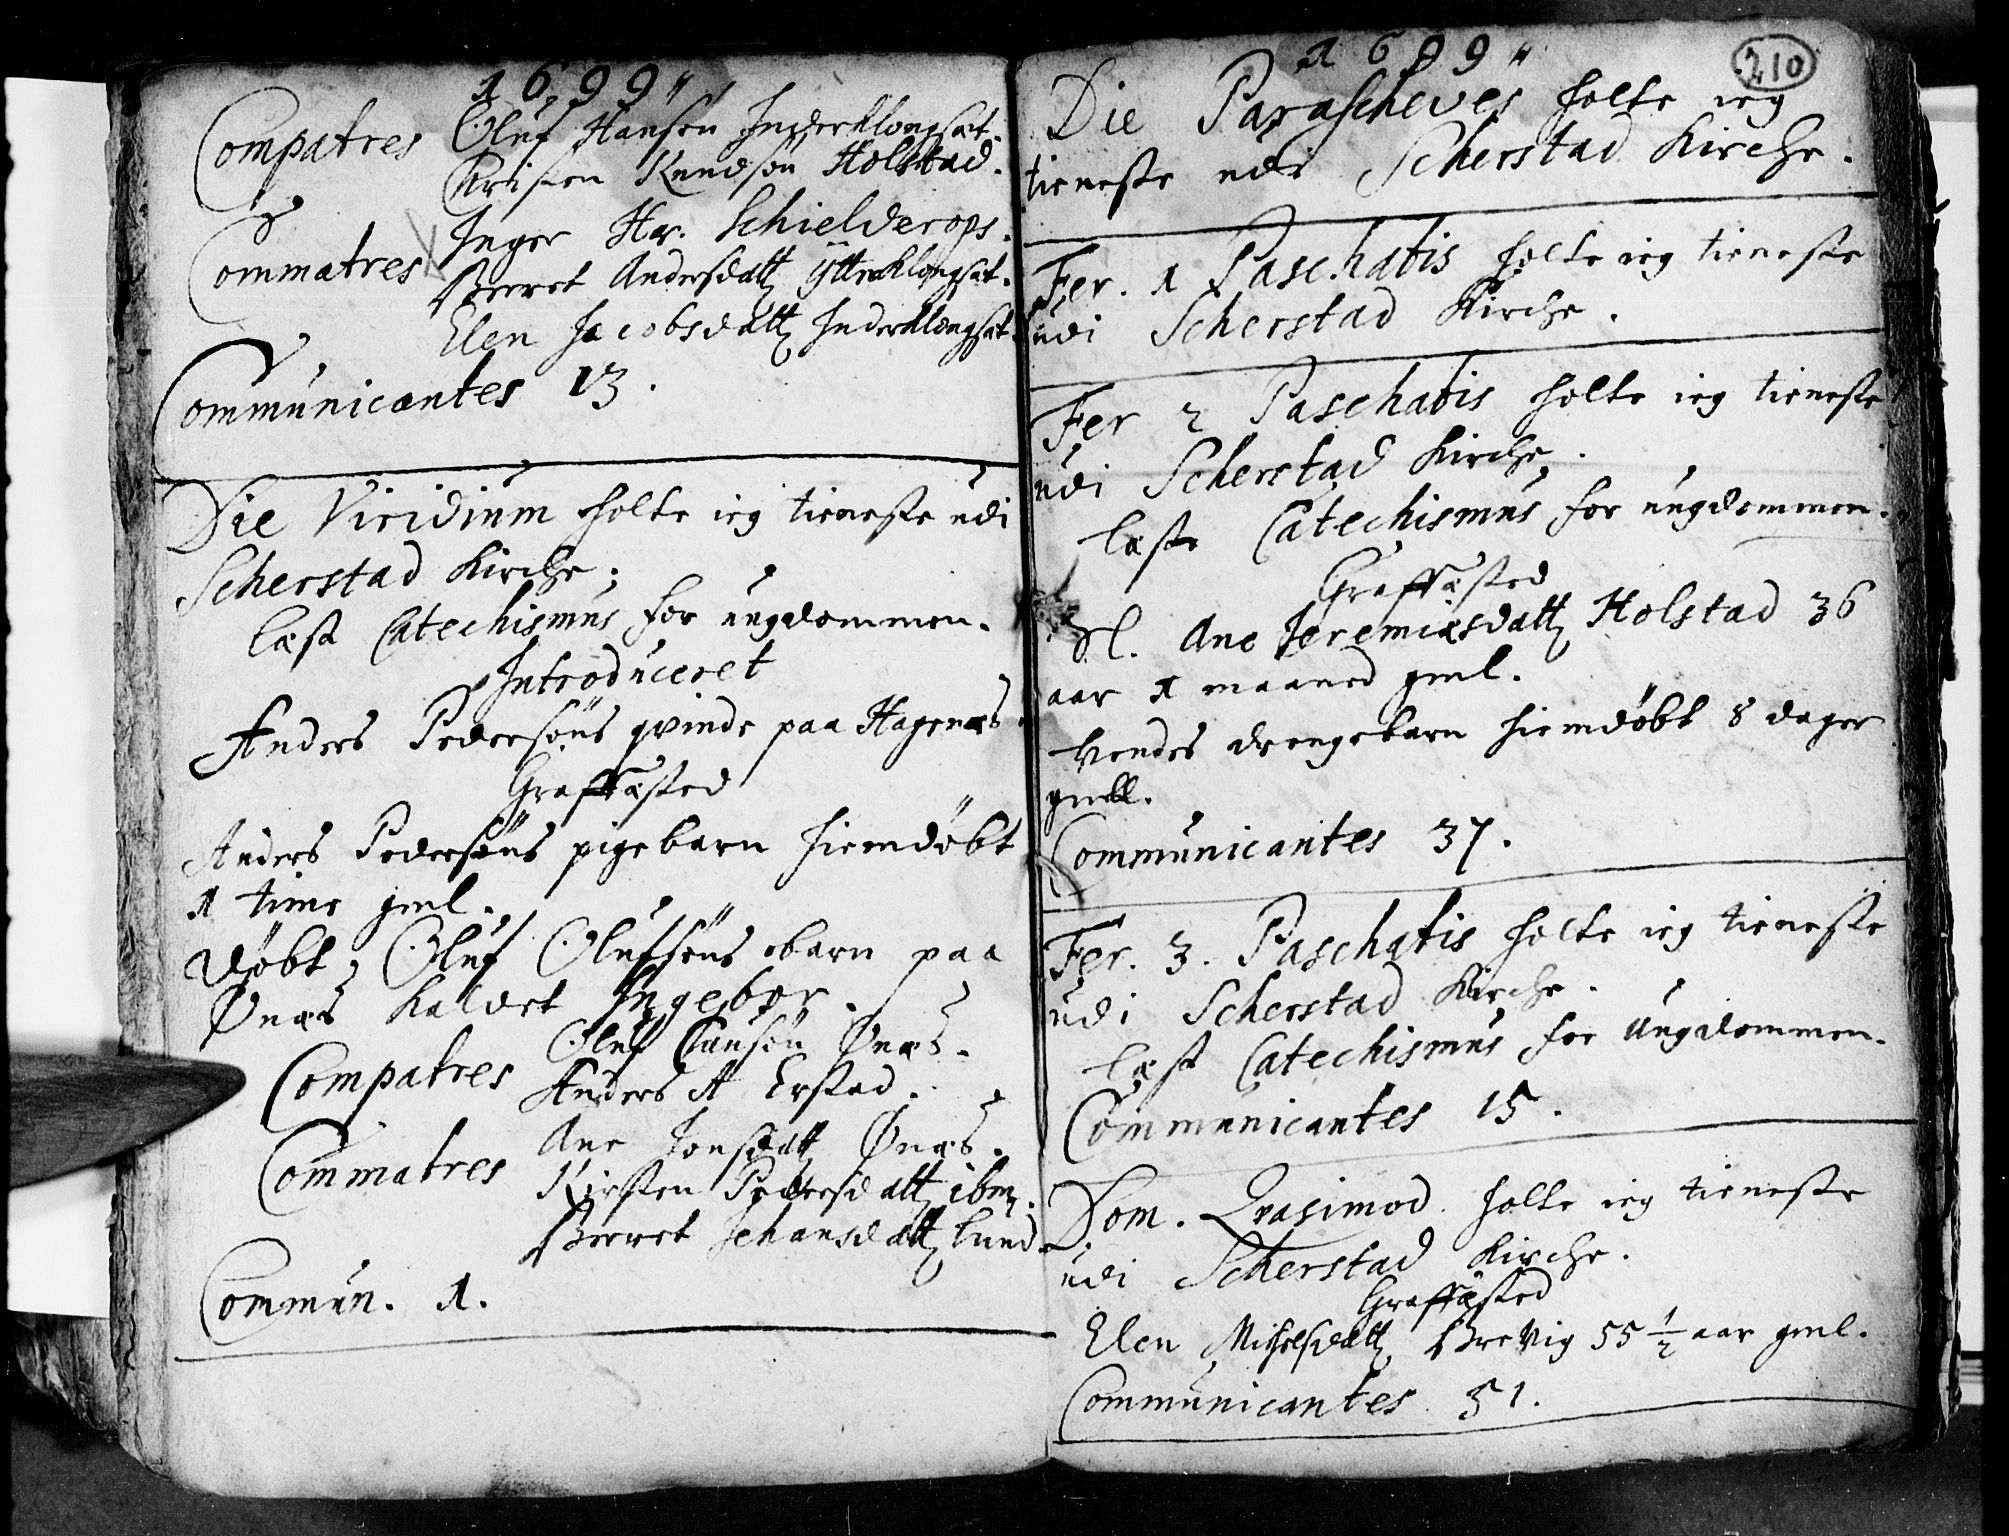 1699
Compatres Oluf Hansøn Inderklongset.
Kristen Knudsøn Holstad.
Commatres Inger Hr. Schielderops.
Berret Andersdatt Ytterklongset.
Elen Jacobsdatt Inderklongset.
Communicantes 13.
Die Viridium holte ieg tieneste udi
Scherstad Kirche;
læst Catechismus for ungdommen.
Introduceret
Anders Pedersøns qvinde paa Hagenæs
Graffæsted
Anders Pedersøns pigebarn hiemdøbt
1 time gml.
Døbt, Oluf Olufsøns barn paa
Ønæs kaldet Ingebor.
Compatres Oluf Ønæs.
Anders A Erstad.
Commatres Ane Jonsdatt Ønæs.
Kirsten Pedersdatt ibm.
Berret Johansdatt Lund.
Commun. 1.
1699 210
Die Parascheves holte ieg
tieneste udi Scherstad Kirche.
Fer. 1 Paschatis holte ieg tieneste
udi Scherstad Kirche.
Fer 2 Paschatis holte ieg tieneste
udi Scherstad Kirche.
læste Catechismus for ungdommen.
Graffæsted
Sl. Ane Jeremiasdatt Holstad 36
aar 1 maaned gml.
hendes drengebarn hiemdøbt 8 dager
gml.
Communicantes 37.
Fer. 3. Paschatis holte ieg tieneste
udi Scherstad Kirche.
læst Catechismus for ungdommen.
Communicantes 15.
Dom. Qvasimod. holte ieg tieneste
udi Scherstad Kirche.
Graffæsted
Elen Michelsdatt Brevig 55 1/2 aar gml.
Communicantes 51.